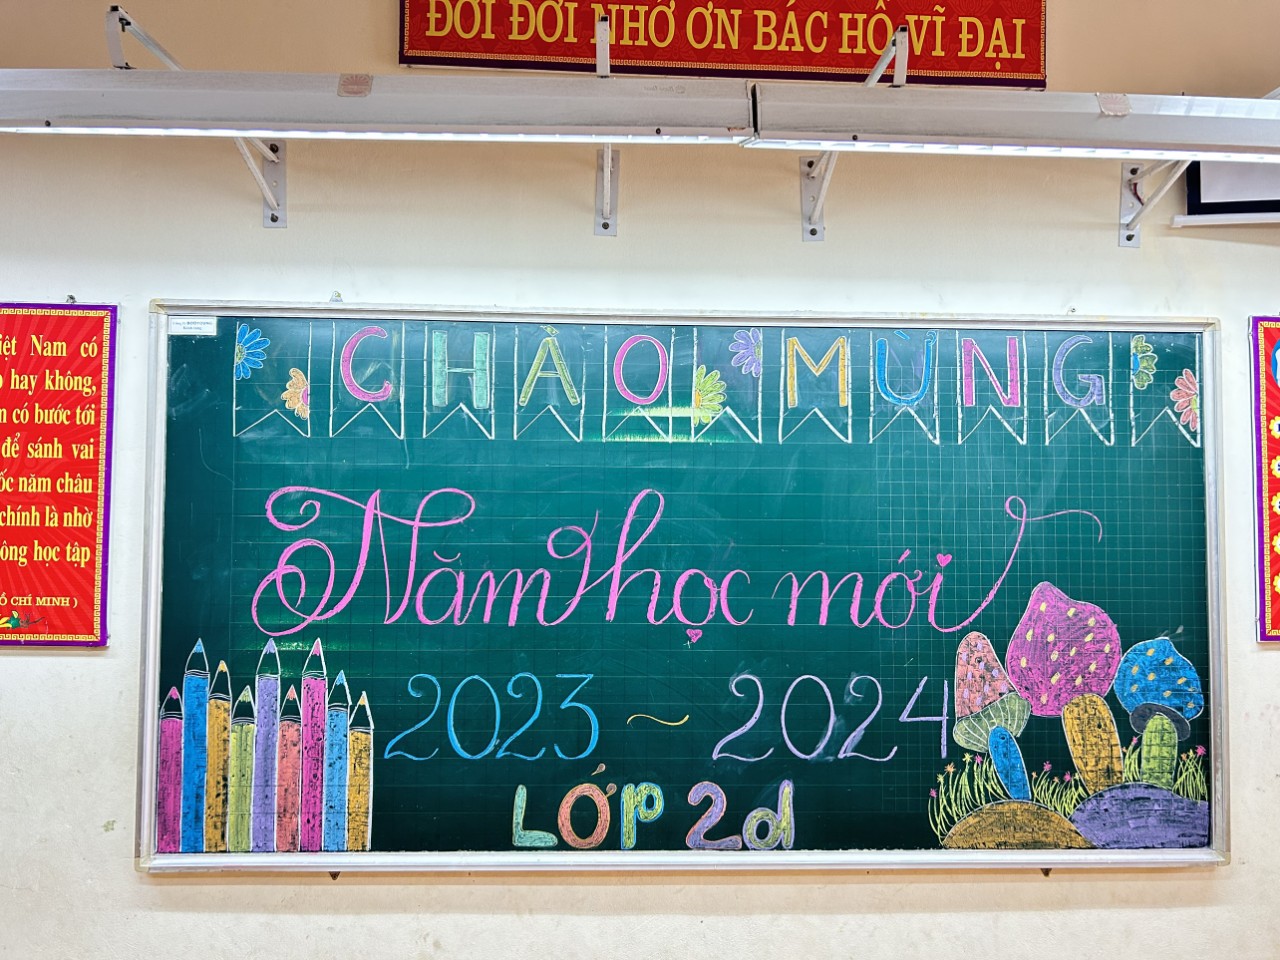 ĐỜI ĐỜI NHỚ ƠN BÁC HỒ VĨ ĐẠI
iệt Nam có
hay không,
n có bước tới
để sánh vai
ốc năm châu
chính là nhờ
ông học tập
Ồ CHÍ MINH )
CHÀO MỪNG
Năm học mới
2023 ~ 2024
LỚP 2d